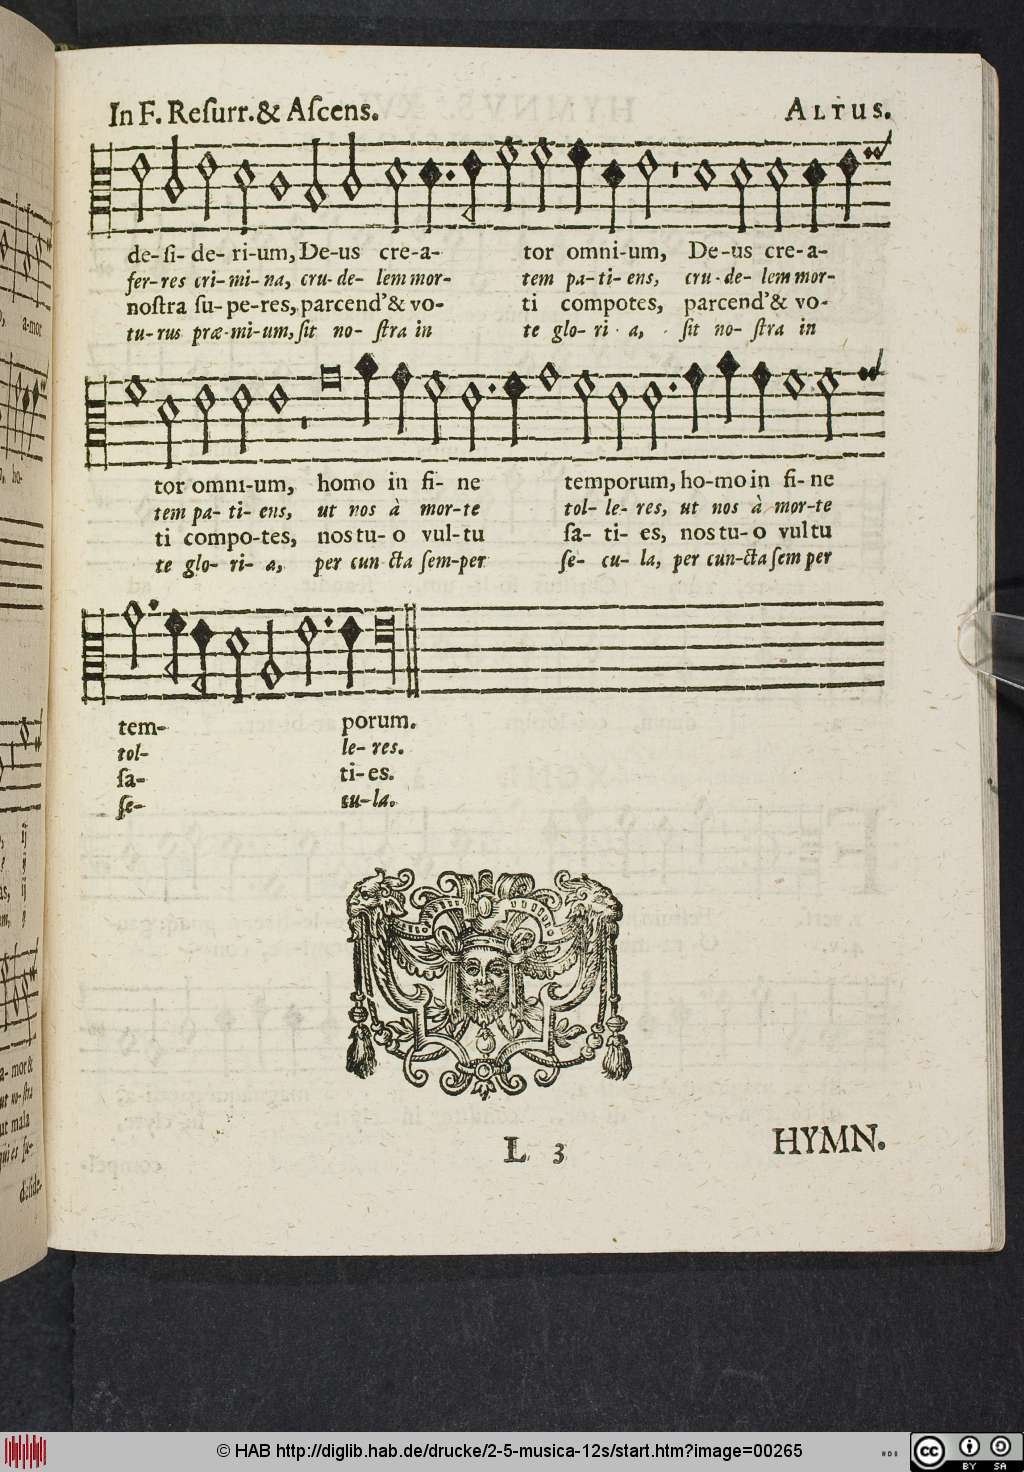 In F. Reſurr. & Aſcens. ALTUS.
de-ſi- de- ri-um, De-us cre-a- tor omni-um, De-us cre-a-
fer-res cri-mi-na, cru-de- lem mor- tem pa-ti-ens, cru-de- lem mor-
noſtra ſu-pe-res, parcend'& vo- ti compotes, parcend'& vo-
tu-rus præ-mi-um, ſit no- ſtra in te glo-ri-a, ſit no- ſtra in
tor omni-um, homo in fi- ne temporum, ho-mo in fi- ne
tem pa- ti- ens, ut nos à mor-te tol- le- res, ut nos à mor-te
ti compo-tes, nos tu- o vul-tu ſa- ti- es, nos tu- o vul tu
te glo- ri- a, per cun cta ſem-per ſe- cu- la, per cun-cta ſem per
tem- porum.
tol- le- res.
ſa- ti-es.
ſe- cu-la.
L 3 HYMN.
a-mor
a- mor &
ut mala
deſide-
© HAB http://diglib.hab.de/drucke/2-5-musica-12s/start.htm?image=00265
cc BY SA